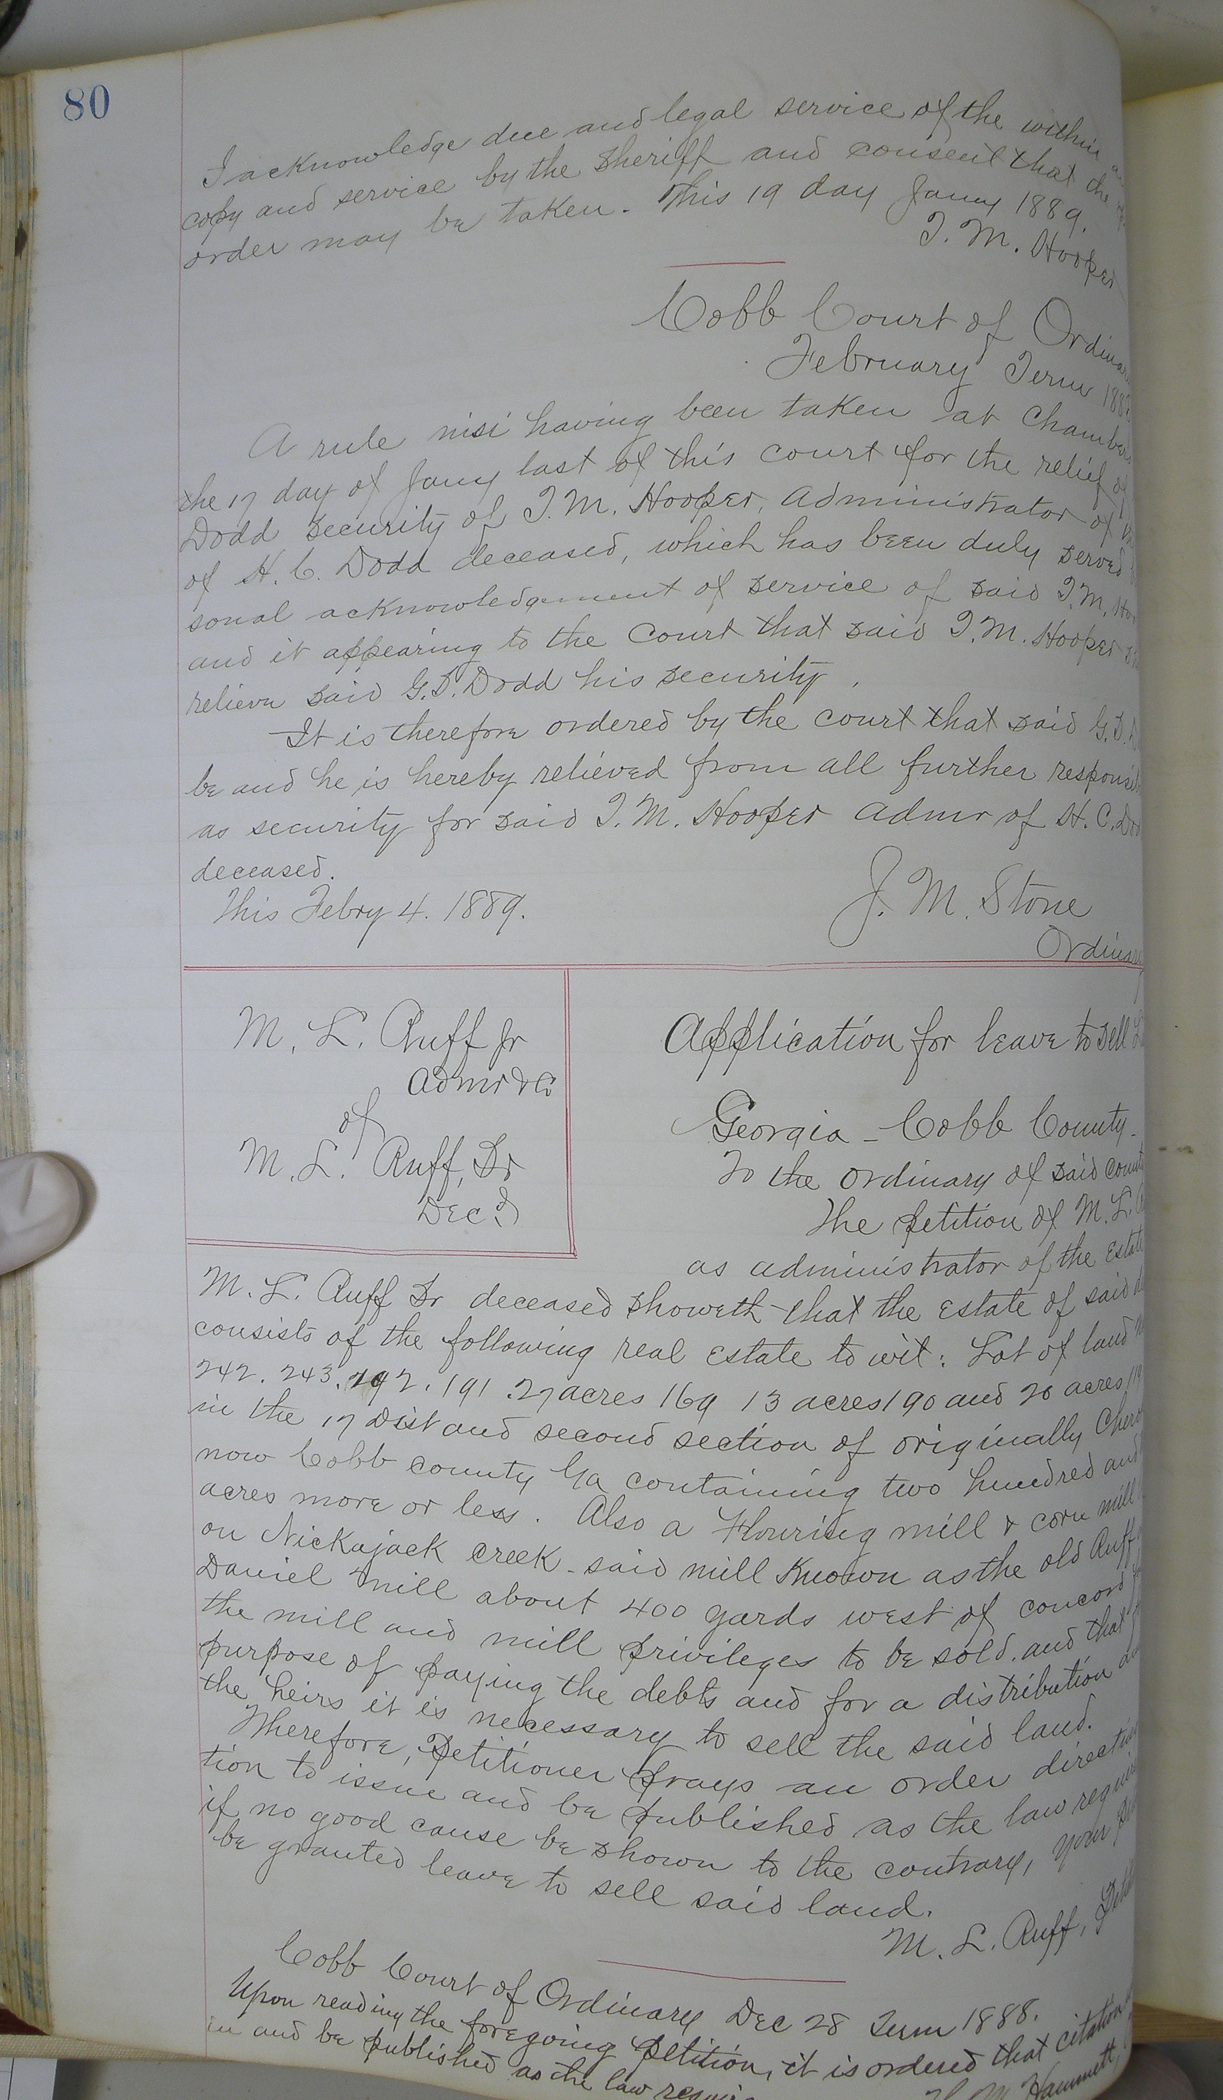 80
I acknowledge due and legal service of the within
copy and service by the sheriff and consent that the
order may be taken. This 19 day Jany 1889.
T. M. Hooper
Cobb Court of Ordinary
February Term 188
A rule nisi having been taken at Chambers
the 17 day of Jany last of this court for the relief of
Dodd security of T. M. Hooper, administrator of
of H. C. Dodd deceased, which has been duly served
sonal acknowledgement of service of said T. M.
and it appearing to the Court that said T. M. Hooper
relieve said G. D. Dodd his security.
It is therefore ordered by the court that said G. D.
be and he is hereby relieved from all further responsi
as security for said T. M. Hooper admr of H. C. Do
deceased.
This Febry 4. 1889.
J. M. Stone
Ordinary
M. L. Ruff Jr
admr &c
of
M. L. Ruff, Sr
Decd
Application for leave to sell
Georgia - Cobb County -
To the ordinary of said county
The petition of M. L.
as administrator of the Estate
M. L. Ruff Sr deceased showeth that the Estate of said
consists of the following real Estate to wit: Lot of land
242. 243. 192. 191. 27 acres 169 13 acres 190 and 20 acres
in the 17 Dist and second section of originally Chero
now Cobb county Ga containing two hundred and
acres more or less. Also a Flouring mill & corn mill
on Nickajack creek - said mill Known as the old Ruff
Daniel mill about 400 yards west of concord
the mill and mill privileges to be sold. and that
purpose of paying the debts and for a distribution
the heirs it is necessary to sell the said land.
Wherefore, Petitioner prays an order directin
tion to issue and be published as the law requir
if no good cause be shown to the contrary, your
be granted leave to sell said land.
M. L. Ruff,
Cobb Court of Ordinary Dec 28 Term 1888.
Upon reading the foregoing petition, it is ordered that citation
in and be published as the law
H. M. Hammett,